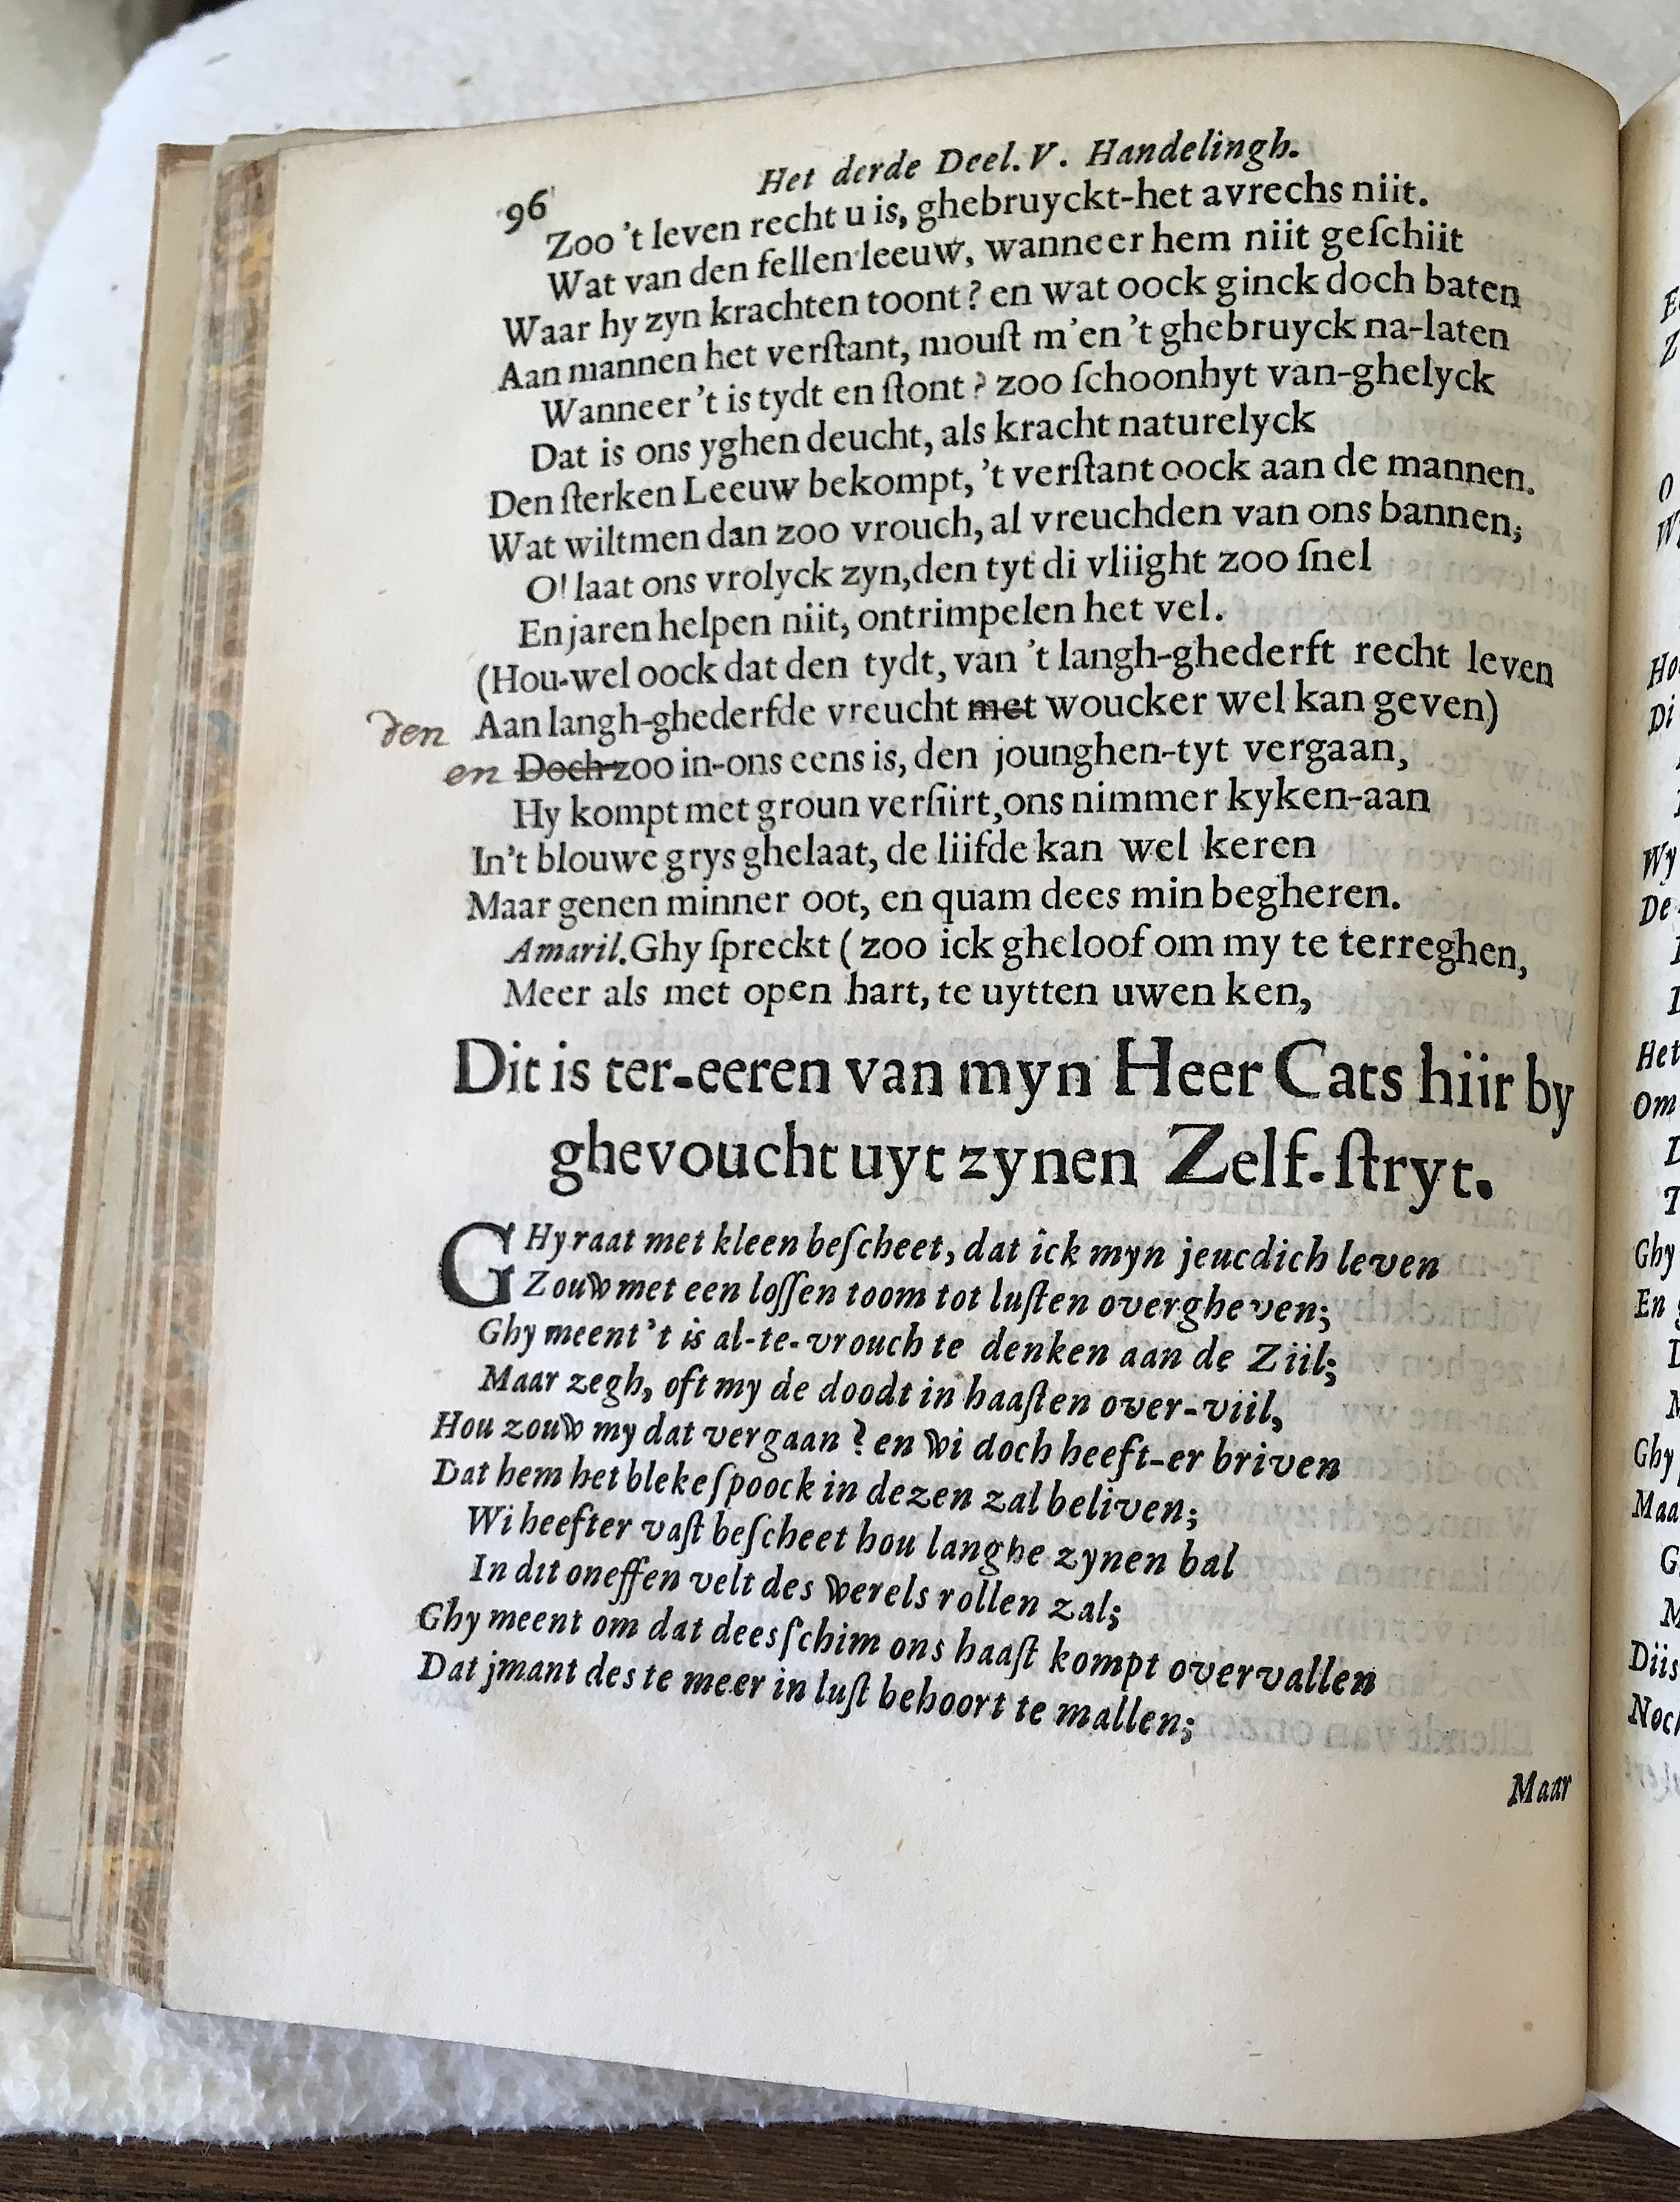 96 Het derde Deel. V. Handelingh.
Zoo 't leven recht u is, ghebruyckt-het avrechs niit.
Wat van den fellen leeuw, wanneer hem niit geſchiit
Waar hy zyn krachten toont? en wat oock ginck doch baten
Aan mannen het verſtant, mouſt m'en 't ghebruyck na-laten
Wanneer 't is tydt en ſtont? zoo ſchoonhyt van-ghelyck
Dat is ons yghen deucht, als kracht naturelyck
Den ſterken Leeuw bekompt, 't verſtant oock aan de mannen.
Wat wiltmen dan zoo vrouch, al vreuchden van ons bannen;
O! laat ons vrolyck zyn, den tyt di vliight zoo ſnel
En jaren helpen niit, ontrimpelen het vel.
(Hou-wel oock dat den tydt, van 't langh-ghederft recht leven
den Aan langh-ghederfde vreucht met woucker wel kan geven)
en Doch zoo in-ons eens is, den jounghen-tyt vergaan,
Hy kompt met groun verſiirt, ons nimmer kyken-aan
In't blouwe grys ghelaat, de liifde kan wel keren
Maar genen minner oot, en quam dees min begheren.
Amaril. Ghy ſpreckt (zoo ick gheloof om my te terreghen,
Meer als met open hart, te uytten uwen ken,
Dit is ter-eeren van myn Heer Cats hiir by
ghevoucht uyt zynen Zelf-ſtryt.
GHy raat met kleen beſcheet, dat ick myn jeucdich leven
Zouw met een loſſen toom tot luſten overgheven;
Ghy meent 't is al-te-vrouch te denken aan de Ziil;
Maar zegh, oft my de doodt in haaſten over-viil,
Hou zouw my dat vergaan? en wi doch heeft-er briven
Dat hem het bleke ſpoock in dezen zal beliven;
Wi heefter vaſt beſcheet hou langhe zynen bal
In dit oneffen velt des werels rollen zal;
Ghy meent om dat dees ſchim ons haaſt kompt overvallen
Dat jmant des te meer in luſt behoort te mallen;
Maar